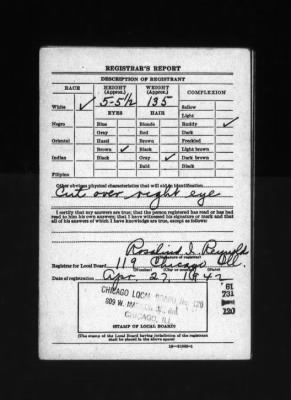 REGISTRAR'S REPORT
DESCRIPTION OF REGISTRANT
RACE HEIGHT (Approx.) WEIGHT (Approx.) COMPLEXION
White ✓ 5-5½ 135 Sallow
EYES HAIR Light
Negro Blue Blonde Ruddy ✓
Gray Red Dark
Oriental Hazel Brown Freckled
Brown ✓ Black Light brown
Indian Black Gray ✓ Dark brown
Bald Black
Filipino
Other obvious physical characteristics that will aid in identification
Cut over right eye
I certify that my answers are true; that the person registered has read or has had
read to him his own answers; that I have witnessed his signature or mark and that
all of his answers of which I have knowledge are true, except as follows:
Rosalind I.
(Signature of registrar)
Registrar for Local Board 119 Chicago Ill.
(Number) (City or county) (State)
Date of registration Apr. 27, 1942
CHICAGO LOCAL BOARD No.
809 W.
CHICAGO, ILL
61
731
120
(STAMP OF LOCAL BOARD)
(The stamp of the Local Board having jurisdiction of the registrant
shall be placed in the above space)